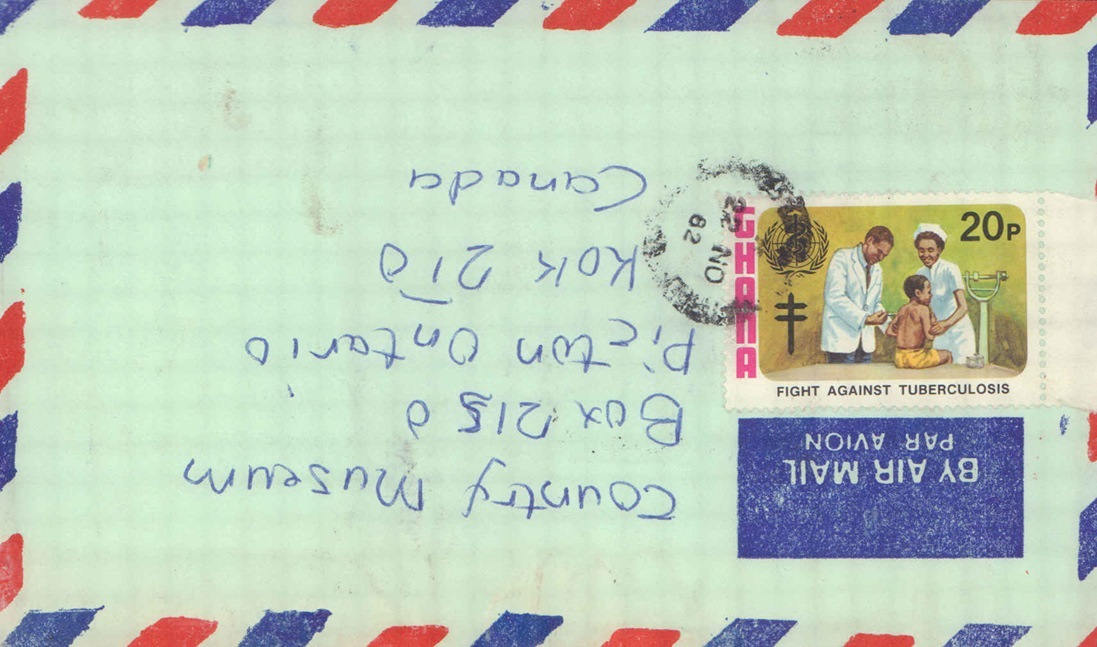 Country Museum
Box 2150
Picton Ontario
K0K 2T0
Canada
BY AIR MAIL
PAR AVION
GHANA
20P
FIGHT AGAINST TUBERCULOSIS
22 NO
82